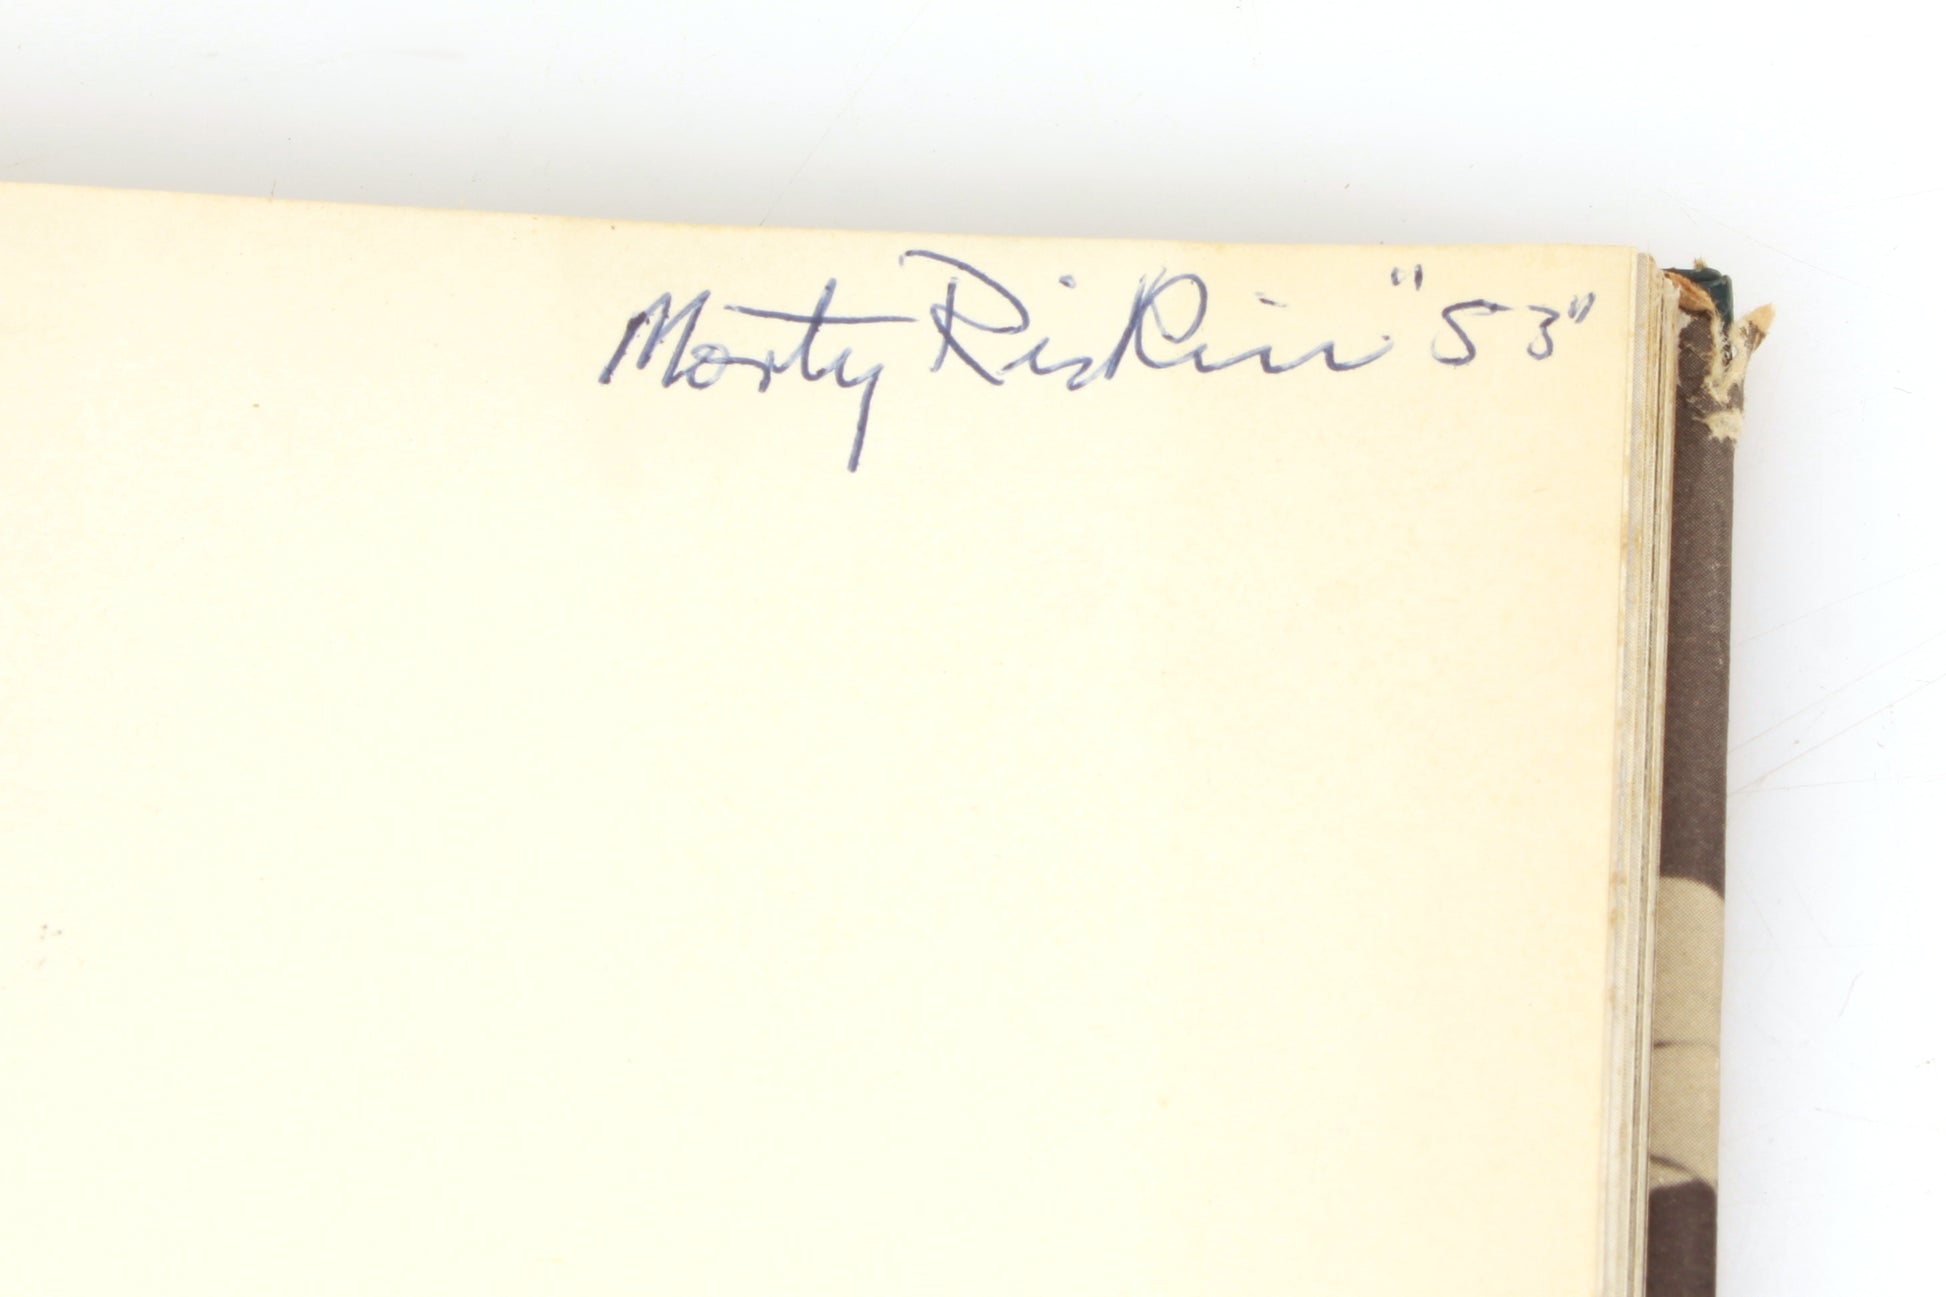 Morty Riskin "53"